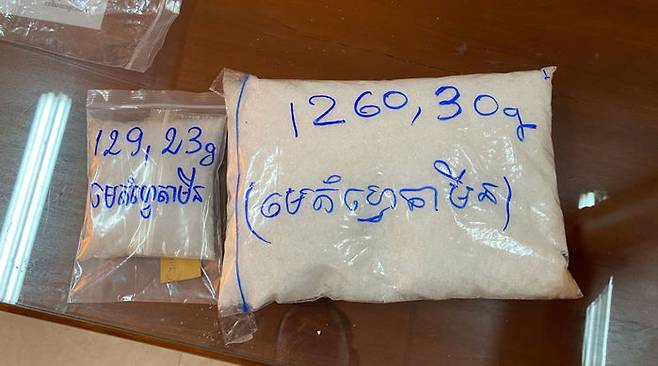 129,23g
មេតំហ្វេតាមីន
1260,30g
(មេតំហ្វេតាមីន)